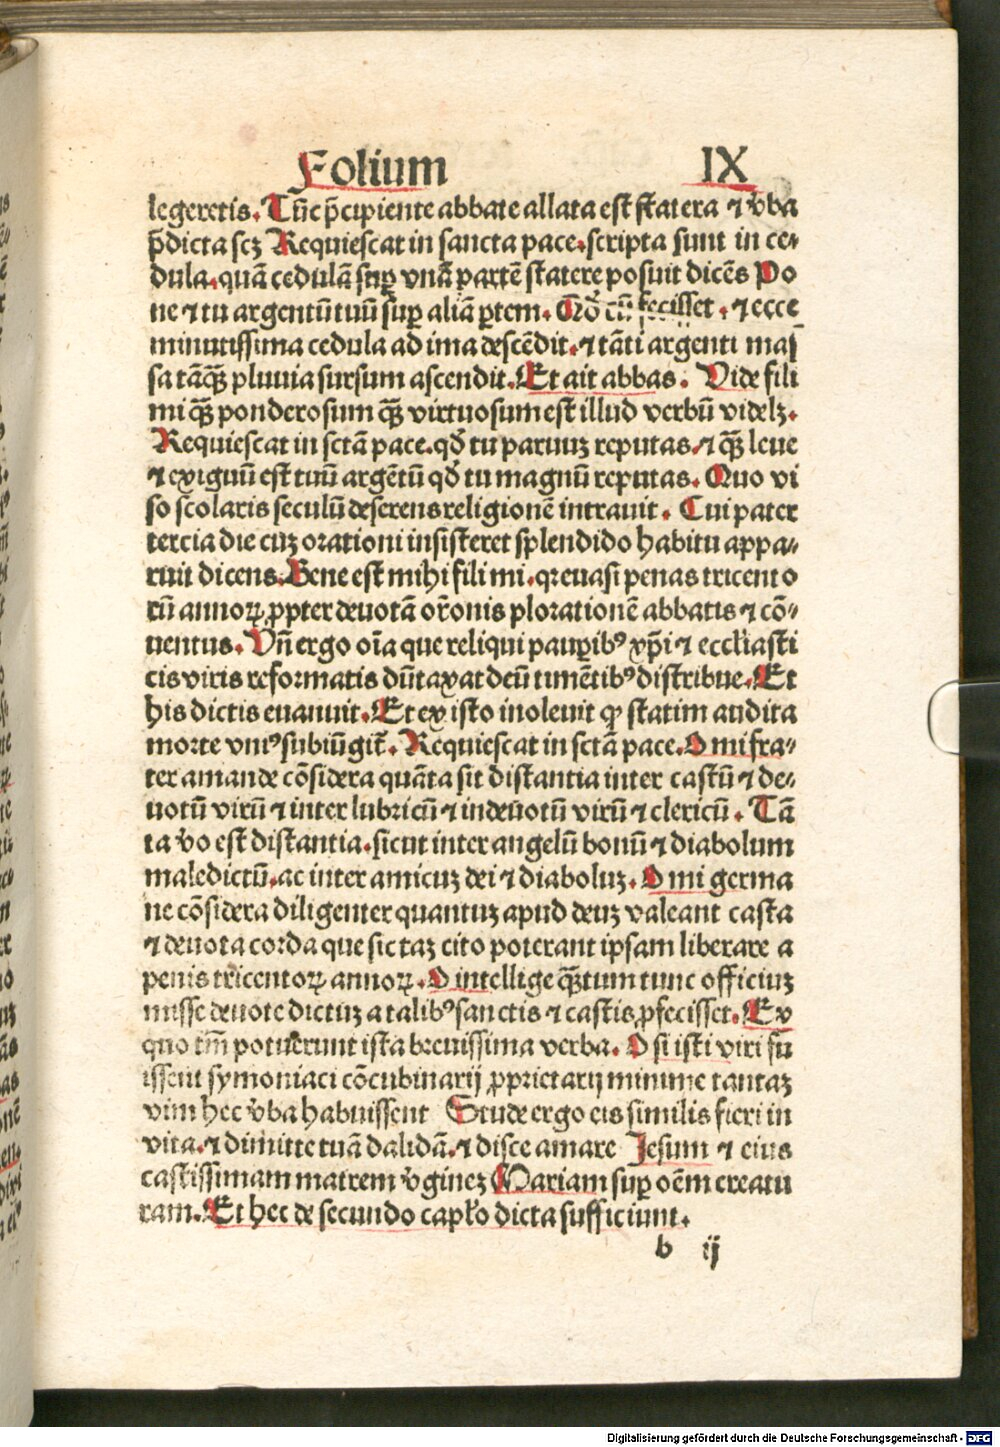 Folium IX
legeretis. Tūc p̄cipiente abbate allata est statera ⁊ v̓ba
p̄dicta scꝫ Requiescat in sancta pace. scripta sunt in ce⸗
dula. quā cedulā suꝑ vnā partē statere posuit dicēs Po
ne ⁊ tu argentū tuū suꝑ aliā ꝑtem. Qd̓ cū fecisset. ⁊ ecce
minutissima cedula ad ima descēdit. ⁊ tāti argenti mas
sa tāqꝫ pluuia sursum ascendit. Et ait abbas. Vide fili
mi qꝫ ponderosum qꝫ virtuosum est illud verbū videlꝫ.
Requiescat in sctā pace. qd̓ tu paruuꝫ reputas, ⁊ qꝫ leue
⁊ exiguū est tuū argētū qd̓ tu magnū reputas. Quo vi
so scolaris seculū deserens religionē intrauit. Cui pater
tercia die cuꝫ orationi insisteret splendido habitu appa⸗
ruit dicens. Bene est mihi fili mi. qꝛ euasi penas tricento
rū annoꝝ ꝓpter deuotā or̄onis plorationē abbatis ⁊ cō⸗
uentus. Vn̄ ergo oīa que reliqui pauꝑibꝰ xp̄i ⁊ eccl̓iasti
cis viris reformatis dūtaxat deū timētibꝰ distribue. Et
his dictis euanuit. Et ex isto inoleuit ꝙ statim audita
morte vniꝰ subiūgit̄. Requiescat in sctā pace. O mi fra⸗
ter amande cōsidera quāta sit distantia inter castū ⁊ de⸗
uotū virū ⁊ inter lubricū ⁊ indeuotū virū ⁊ clericū. Tā
ta v̓o est distantia. sicut inter angelū bonū ⁊ diabolum
maledictū. ac inter amicuꝫ dei ⁊ diaboluꝫ. O mi germa
ne cōsidera diligenter quantuꝫ apud deuꝫ valeant casta
⁊ deuota corda que sic taꝫ cito poterant ipsam liberare a
penis tricentoꝝ annoꝝ. O intellige qꝫtum tunc officiuꝫ
misse deuote dictuꝫ a talibꝰ sanctis ⁊ castis ꝓfecisset. Ex
quo tm̄ potuerunt ista breuissima verba. O si isti viri fu
issent symoniaci cōcubinarij ꝓprietarij minime tantaꝫ
vim hec v̓ba habuissent Stude ergo eis similis fieri in
vita. ⁊ dimitte tuā dalidā. ⁊ disce amare Jesum ⁊ eius
castissimam matrem v̓gineꝫ Mariam suꝑ oēm creatu
ram. Et hec de secundo cap̄lo dicta sufficiunt.
b ij
Digitalisierung gefördert durch die Deutsche Forschungsgemeinschaft - DFG